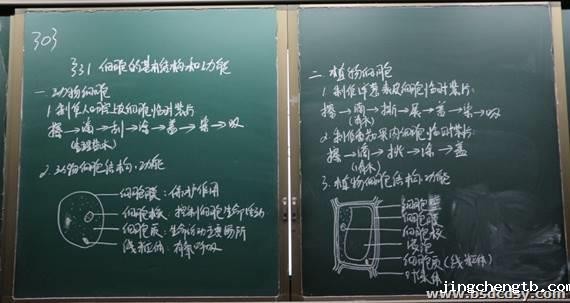 303
§3.1 细胞的基本结构和功能
一 动物细胞
1 制作人口腔上皮细胞临时装片
擦→滴→刮→涂→盖→染→吸
(生理盐水)
2. 动物细胞结构、功能
细胞膜:保护作用
细胞核:控制细胞生命活动
细胞质:生命活动主要场所
线粒体 有氧呼吸
二 植物细胞
1 制作洋葱表皮细胞临时装片:
擦→滴→撕→展→盖→染→吸
(清水)
2. 制作番茄果肉细胞临时装片:
擦→滴→挑→涂→盖
(清水)
3. 植物细胞结构、功能
细胞壁
细胞膜
细胞核
液泡
细胞质(线粒体)
叶绿体
jingchengtb.com